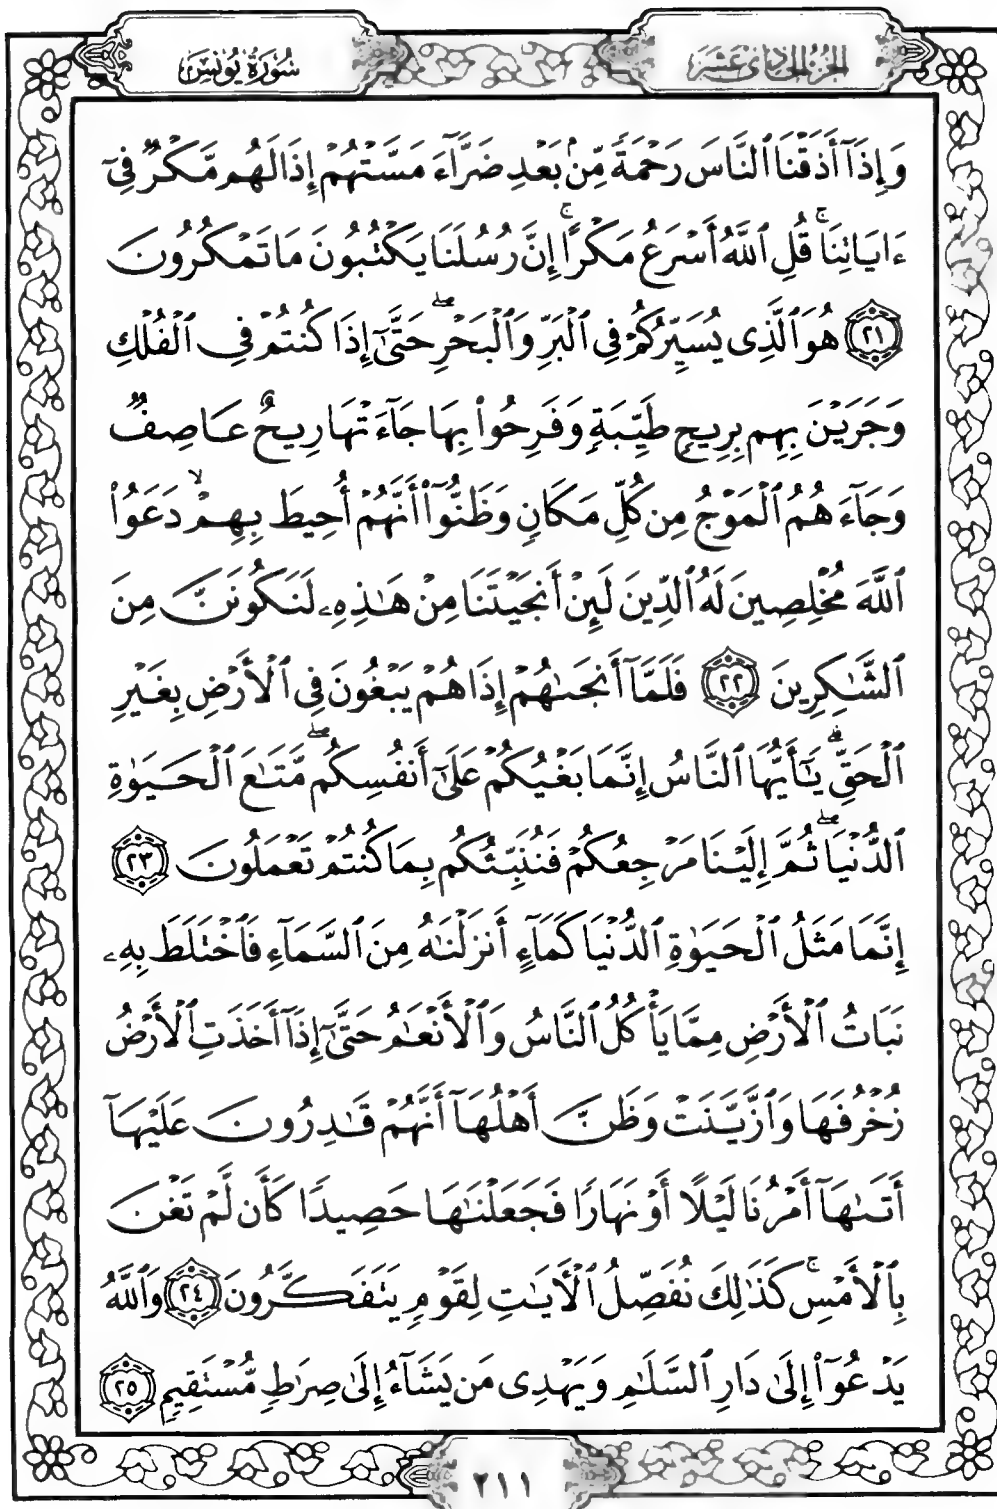 الجزء الحادي عشر
سورة يونس
وَإِذَآ أَذَقْنَا ٱلنَّاسَ رَحْمَةً مِّنۢ بَعْدِ ضَرَّآءَ مَسَّتْهُمْ إِذَا لَهُم مَّكْرٌ فِىٓ
ءَايَاتِنَا ۚ قُلِ ٱللَّهُ أَسْرَعُ مَكْرًا ۚ إِنَّ رُسُلَنَا يَكْتُبُونَ مَا تَمْكُرُونَ
٢١ هُوَ ٱلَّذِى يُسَيِّرُكُمْ فِى ٱلْبَرِّ وَٱلْبَحْرِ ۖ حَتَّىٰٓ إِذَا كُنتُمْ فِى ٱلْفُلْكِ
وَجَرَيْنَ بِهِم بِرِيحٍ طَيِّبَةٍ وَفَرِحُوا۟ بِهَا جَآءَتْهَا رِيحٌ عَاصِفٌ
وَجَآءَهُمُ ٱلْمَوْجُ مِن كُلِّ مَكَانٍ وَظَنُّوٓا۟ أَنَّهُمْ أُحِيطَ بِهِمْ ۙ دَعَوُا۟
ٱللَّهَ مُخْلِصِينَ لَهُ ٱلدِّينَ لَئِنْ أَنجَيْتَنَا مِنْ هَـٰذِهِۦ لَنَكُونَنَّ مِنَ
ٱلشَّـٰكِرِينَ ٢٢ فَلَمَّآ أَنجَىٰهُمْ إِذَا هُمْ يَبْغُونَ فِى ٱلْأَرْضِ بِغَيْرِ
ٱلْحَقِّ ۗ يَـٰٓأَيُّهَا ٱلنَّاسُ إِنَّمَا بَغْيُكُمْ عَلَىٰٓ أَنفُسِكُم ۖ مَّتَـٰعَ ٱلْحَيَوٰةِ
ٱلدُّنْيَا ۖ ثُمَّ إِلَيْنَا مَرْجِعُكُمْ فَنُنَبِّئُكُم بِمَا كُنتُمْ تَعْمَلُونَ ٢٣
إِنَّمَا مَثَلُ ٱلْحَيَوٰةِ ٱلدُّنْيَا كَمَآءٍ أَنزَلْنَـٰهُ مِنَ ٱلسَّمَآءِ فَٱخْتَلَطَ بِهِۦ
نَبَاتُ ٱلْأَرْضِ مِمَّا يَأْكُلُ ٱلنَّاسُ وَٱلْأَنْعَـٰمُ حَتَّىٰٓ إِذَآ أَخَذَتِ ٱلْأَرْضُ
زُخْرُفَهَا وَٱزَّيَّنَتْ وَظَنَّ أَهْلُهَآ أَنَّهُمْ قَـٰدِرُونَ عَلَيْهَآ
أَتَىٰهَآ أَمْرُنَا لَيْلًا أَوْ نَهَارًا فَجَعَلْنَـٰهَا حَصِيدًا كَأَن لَّمْ تَغْنَ
بِٱلْأَمْسِ ۚ كَذَٰلِكَ نُفَصِّلُ ٱلْأَيَـٰتِ لِقَوْمٍ يَتَفَكَّرُونَ ٢٤ وَٱللَّهُ
يَدْعُوٓا۟ إِلَىٰ دَارِ ٱلسَّلَـٰمِ وَيَهْدِى مَن يَشَآءُ إِلَىٰ صِرَٰطٍ مُّسْتَقِيمٍ ٢٥
٢١١